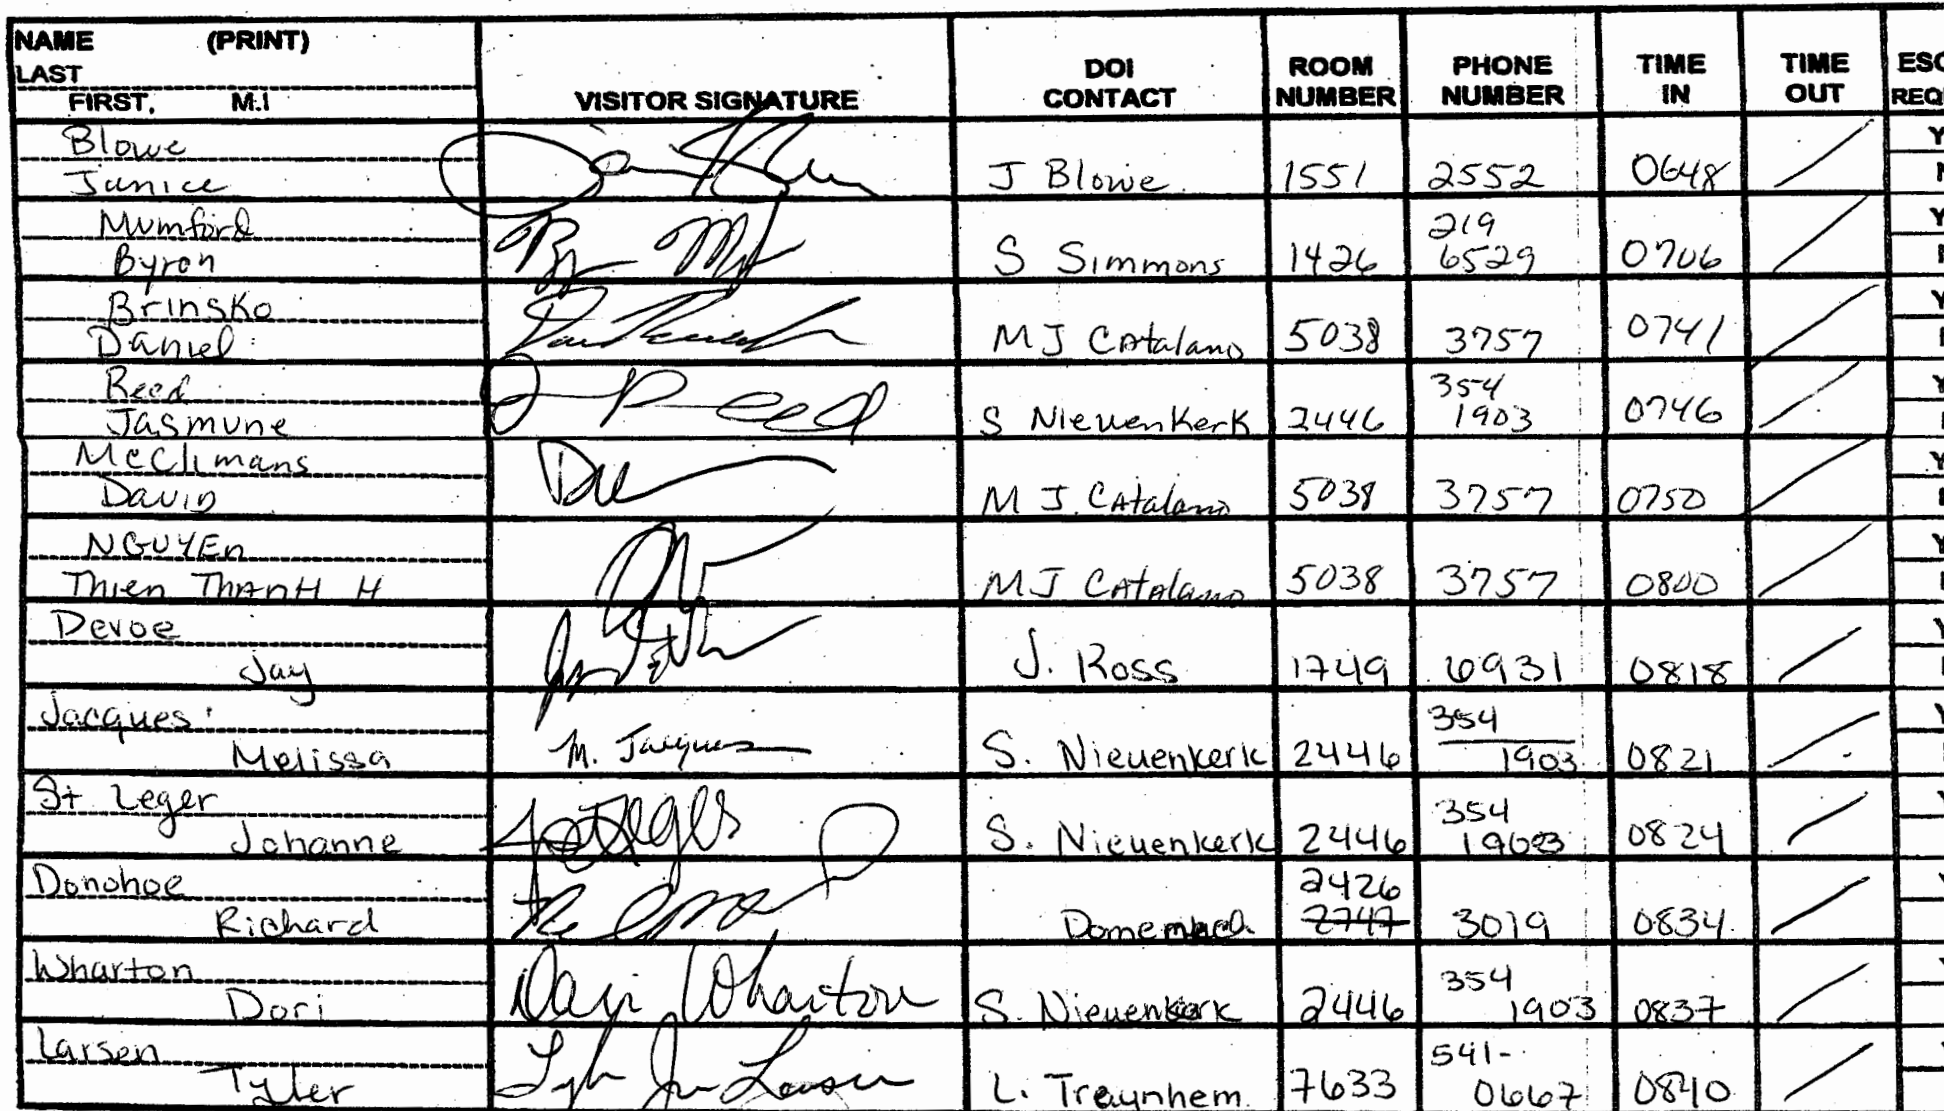 NAME (PRINT)
LAST
FIRST, M.I
VISITOR SIGNATURE
DOI
CONTACT
ROOM
NUMBER
PHONE
NUMBER
TIME
IN
TIME
OUT
ESC
REQ
Blowe
Janice
J Blowe 1551 2552 0648
Mumford
Byron
S Simmons 1426 219
6529 0706
Brinsko
Daniel
MJ Catalano 5038 3757 0741
Reed
Jasmune
Reed
S Nieuenkerk 2446 354
1903 0746
McClimans
David
M J. Catalano 5038 3757 0750
NGUYEn
Thien ThanH H
MJ Catalano 5038 3757 0800
Devoe
Jay
J. Ross 1749 6931 0818
Jacques
Melissa
M. Jacques
S. Nieuenkerk 2446 354
1903 0821
St Leger
Johanne
S. Nieuenkerk 2446 354
1903 0824
Donohoe
Richard
2426
2747 3019 0834
Wharton
Dori
Dori Wharton
S. Nieuenkerk 2446 354
1903 0837
Larsen
Tyler
L. Traynhem 7633 541-
0667 0840